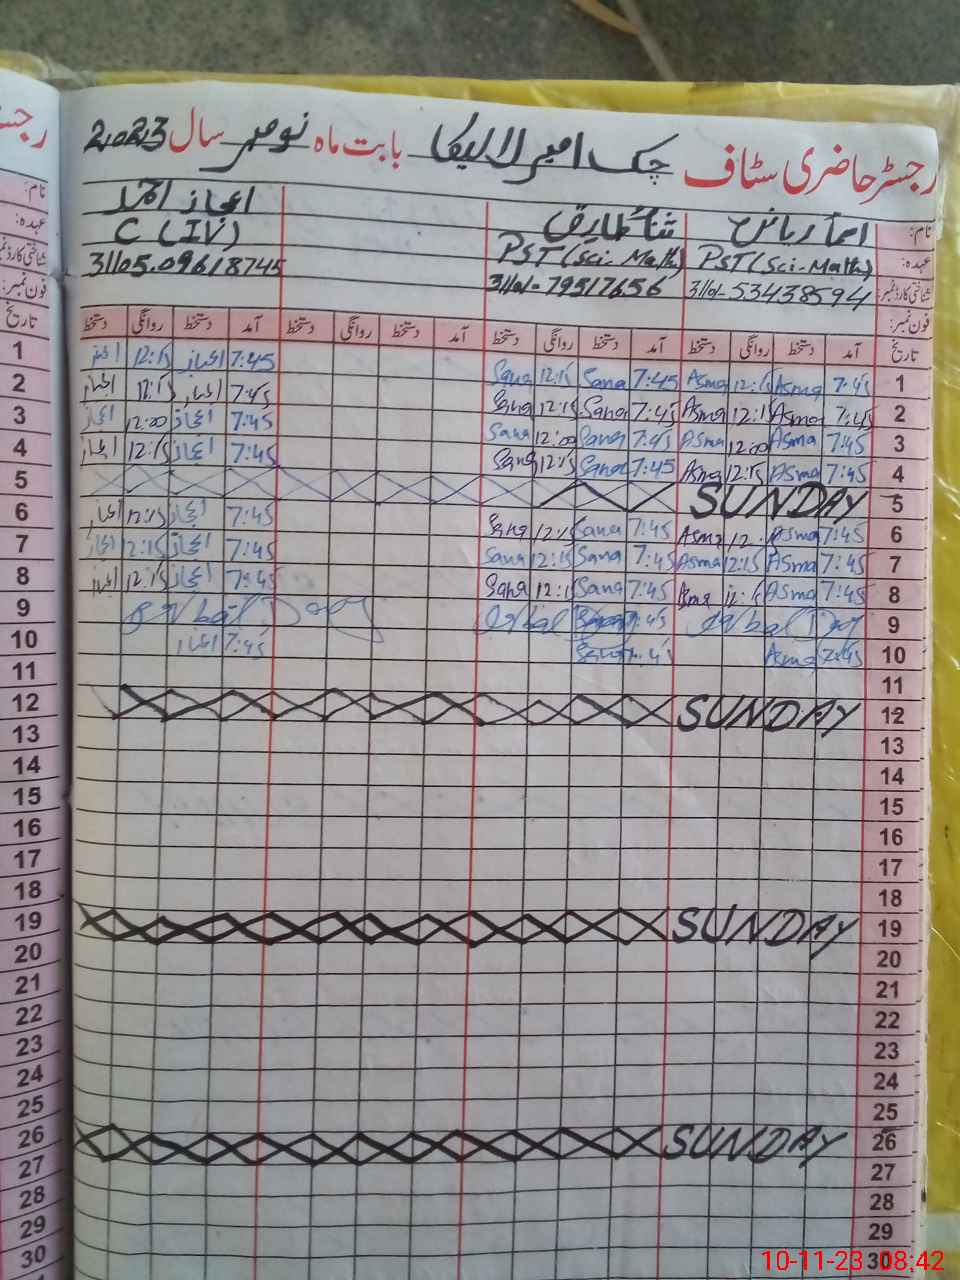 رجسٹر حاضری سٹاف چک امیر لالیکا بابت ماہ نومبر سال 2023
نام: اسما ریاض ثناء طارق اعجاز احمد
عہدہ: PST (Sci-Math) PST (Sci-Math) C (IV)
شناختی کارڈ نمبر: 31101-53438594 31101-79517656 31105-09618745
فون نمبر:
تاریخ آمد دستخط روانگی دستخط آمد دستخط روانگی دستخط آمد دستخط روانگی دستخط آمد دستخط روانگی دستخط تاریخ
1 7:45 Asma 12:15 Asma 7:45 Sana 12:15 Sana 7:45 اعجاز 12:15 اعجاز 1
2 7:45 Asma 12:15 Asma 7:45 Sana 12:15 Sana 7:45 اعجاز 12:15 اعجاز 2
3 7:45 Asma 12:00 Asma 7:45 Sana 12:00 Sana 7:45 اعجاز 12:00 اعجاز 3
4 7:45 Asma 12:15 Asma 7:45 Sana 12:15 Sana 7:45 اعجاز 12:15 اعجاز 4
5 SUNDAY 5
6 7:45 Asma 12: Asma 7:45 Sana 12:15 Sana 7:45 اعجاز 12:15 اعجاز 6
7 7:45 Asma 12:15 Asma 7:45 Sana 12:15 Sana 7:45 اعجاز 12:15 اعجاز 7
8 7:45 Asma 12:15 Asma 7:45 Sana 12:15 Sana 7:45 اعجاز 12:15 اعجاز 8
9 Iqbal Day Iqbal 7:45 Iqbal Day 9
10 7:45 Asma 7:45 Sana 7:45 اعجاز 10
11 11
12 SUNDAY 12
13 13
14 14
15 15
16 16
17 17
18 18
19 SUNDAY 19
20 20
21 21
22 22
23 23
24 24
25 25
26 SUNDAY 26
27 27
28 28
29 29
30 30
10-11-23 08:42